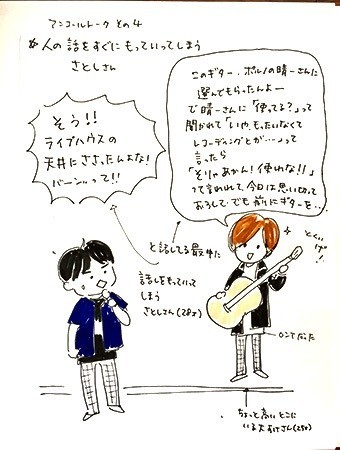 アンコールトーク その4
人の話をすぐにもっていってしまう
さとしさん
このギター、ポルノの晴一さんに
選んでもらったんよー
で晴一さんに「使ってる?」って
聞かれて「いや、もったいなくて
レコーディングとか…」って
言ったら
「そりゃあかん!使わな!!」
って言われて、今日は思い切って
おろして、でも前にギターを…
そう!!
ライブハウスの
天井にささったんよな!
バーンって!!
と話してる最中に
話しをもっていって
しまう
さとしさん(28才)
ロングだった
ちょっと高いとこに